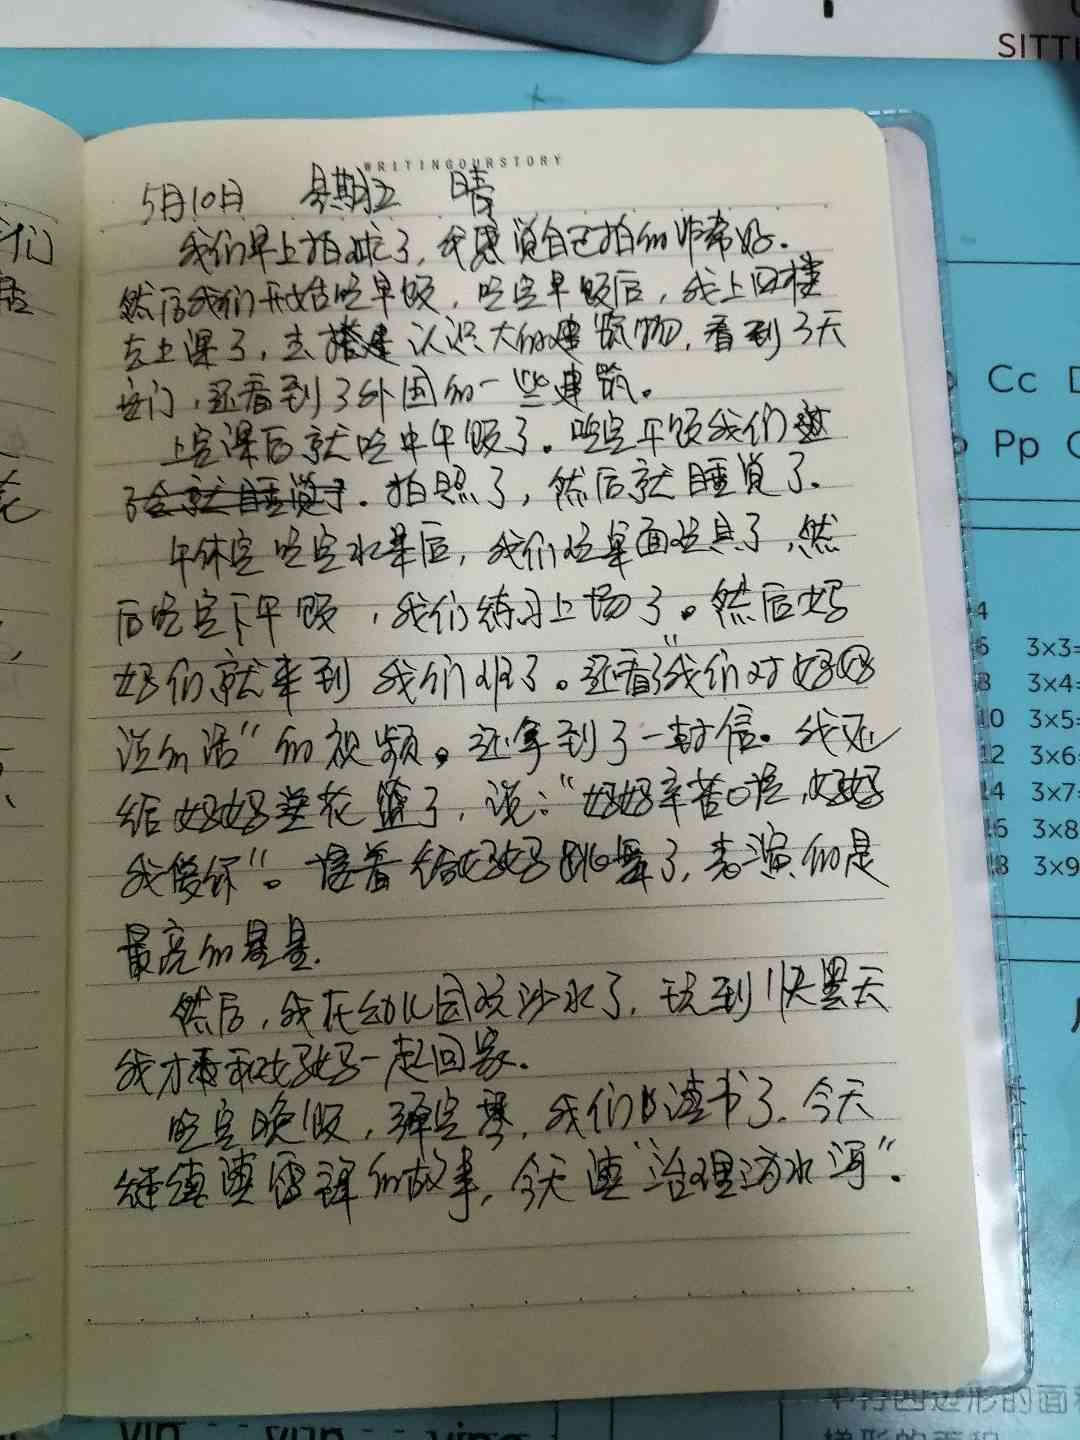 SITTI
WRITINGOURSTORY
5月10日 星期五 晴
我们早上拍球了,我感觉自己拍的非常好.
然后我们开始吃早饭,吃完早饭后,我上四楼
去上课了,去搭建认识大的建筑物,看到了天
安门,还看到了外国的一些建筑。
上完课后就吃中午饭了。吃完午饭我们
拍照了,然后就睡觉了.
午休完吃完水果后,我们玩桌面玩具了,然
后吃完下午饭,我们练习上场了。然后妈
妈们就来到我们班了。还看了"我们对妈妈
说的话"的视频。还拿到了一封信。我还
给妈妈送花篮了,说:"妈妈辛苦啦,妈妈
我爱你"。接着给妈妈跳舞了,表演的是
最亮的星星.
然后,我在幼儿园玩沙水了,玩到快黑天
我才和妈妈一起回家.
吃完晚饭,弹完琴,我们读书了.今天
继续读雷锋的故事,今天读"治理污水河".
们
花
Cc D
Pp
3×3=
3×4=
10 3×5=
12 3×6=
14 3×7=
16 3×8
18 3×9
平行四边形的面积
梯形的面积